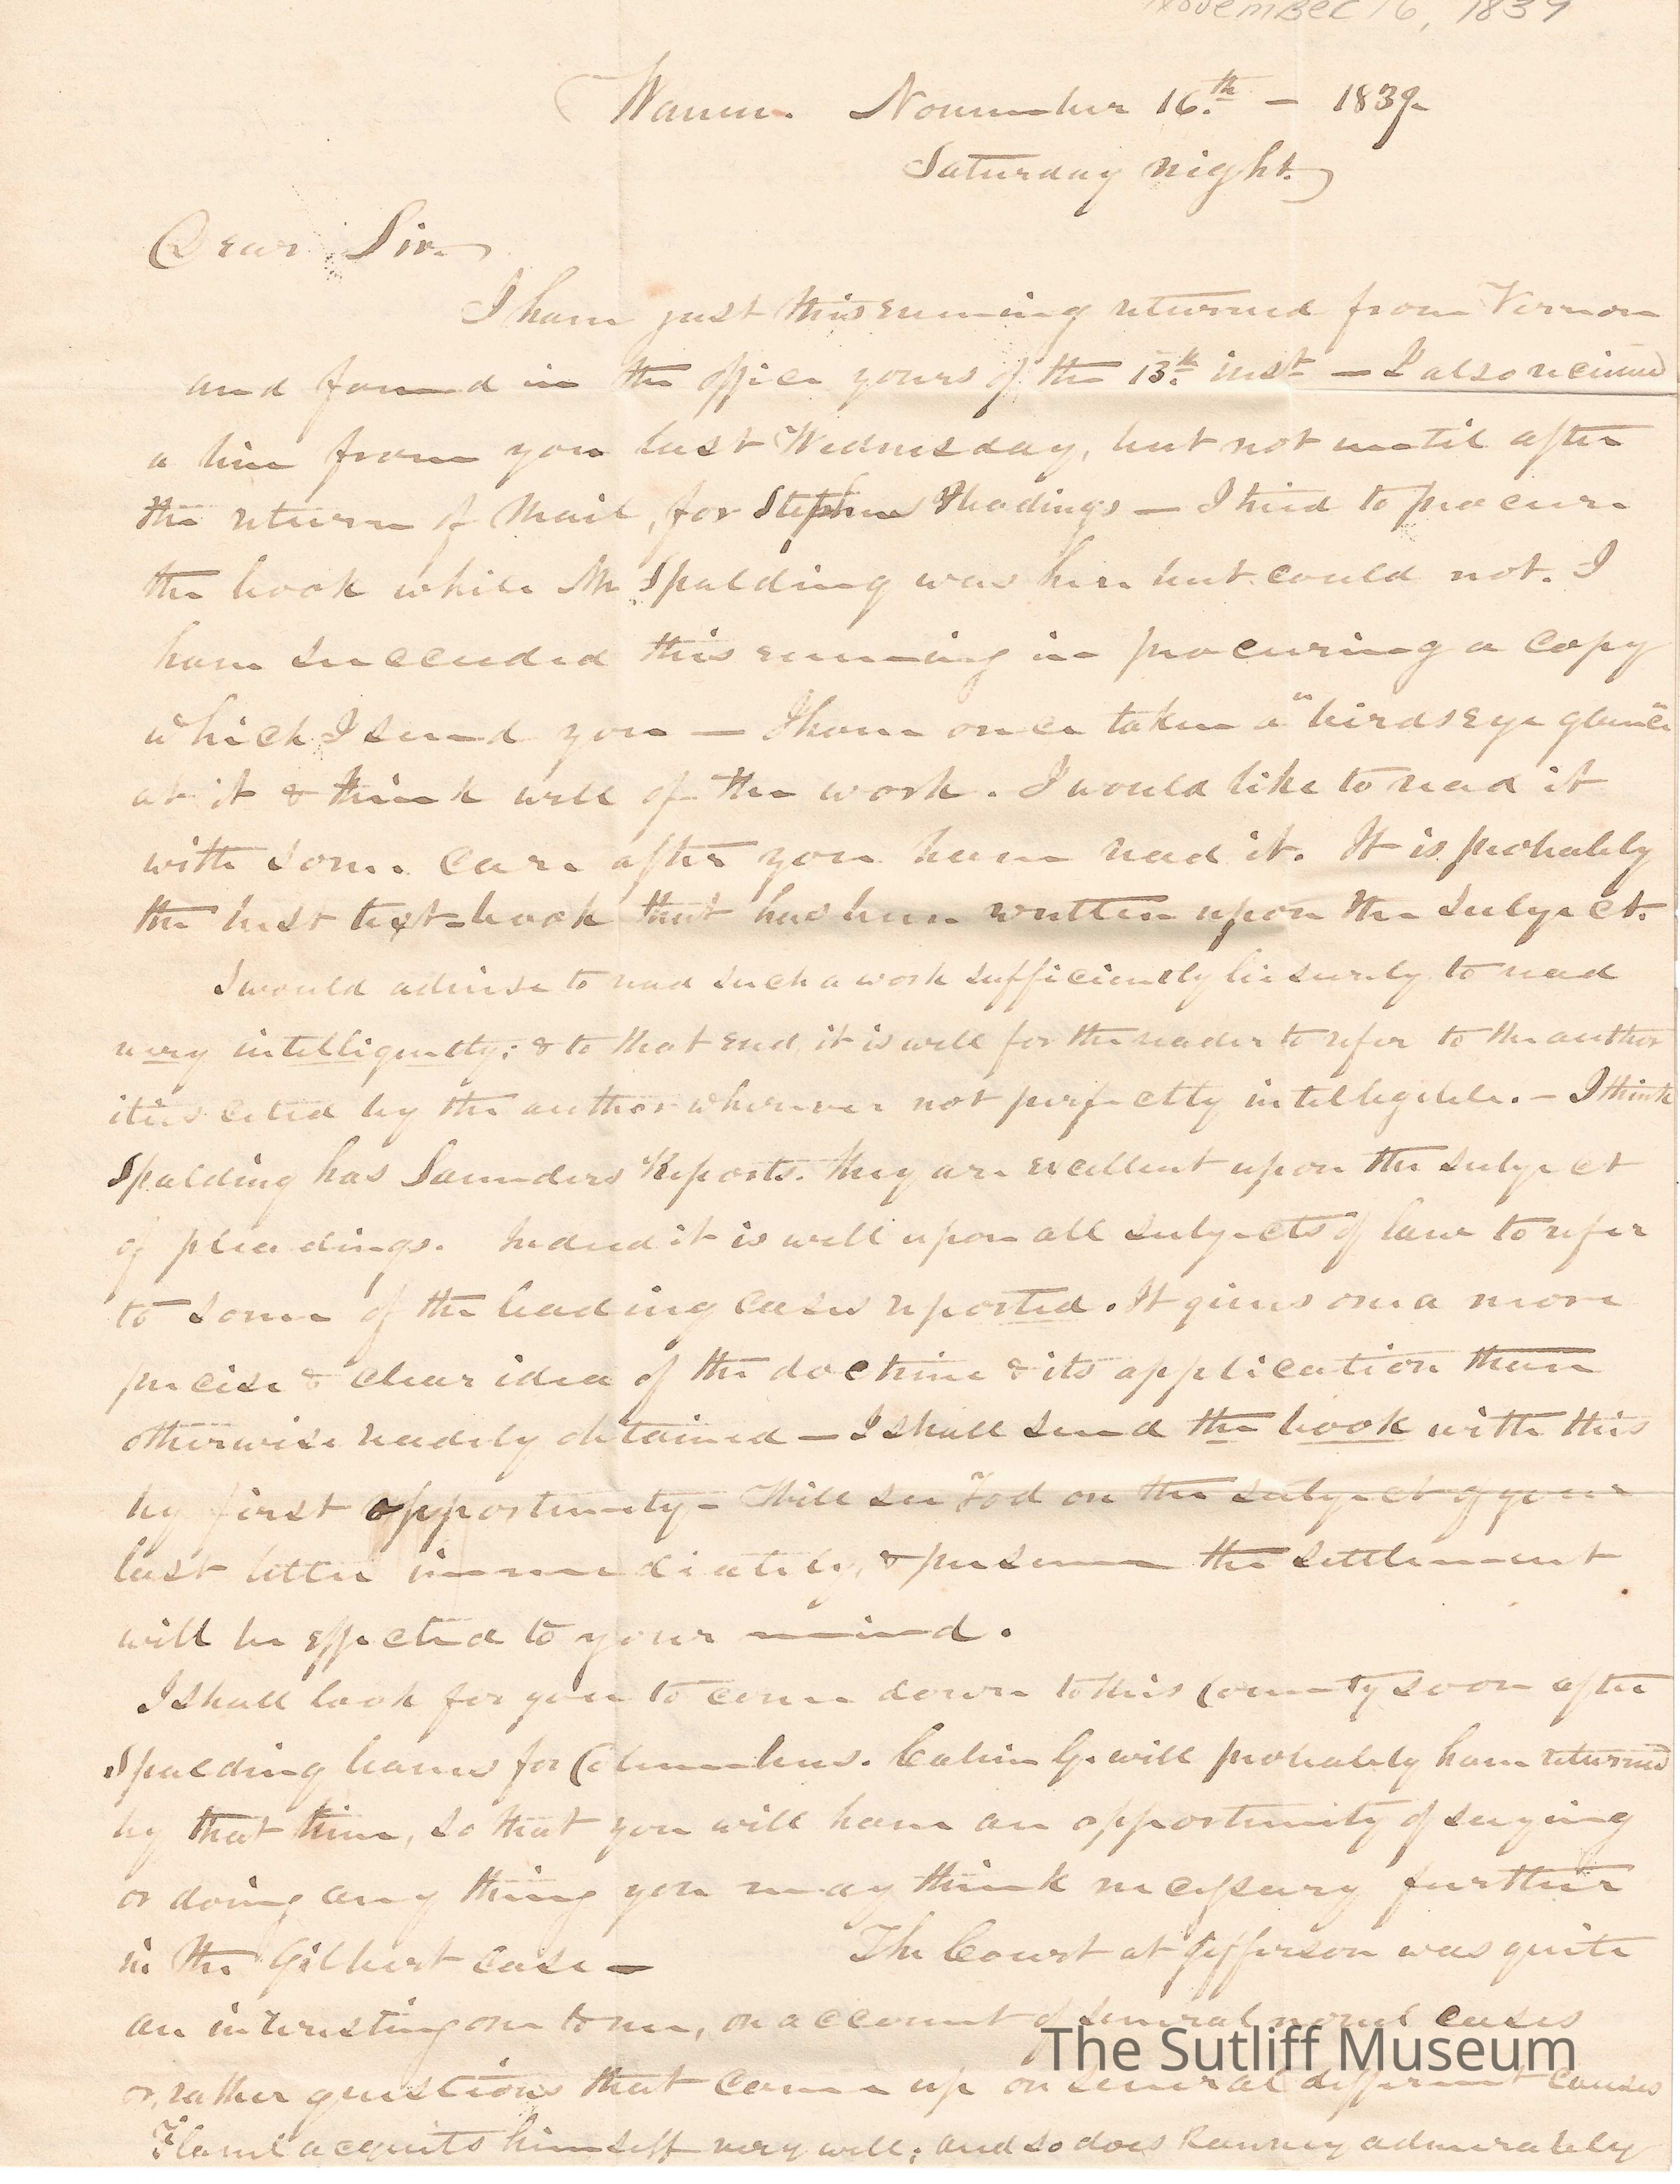 November 16, 1839
Warren. November 16th. – 1839
Saturday night.
Dear Sir.
I have just this evening returned from Vernon
and found in the office yours of the 13th. inst – I also received
a line from you last Wednesday, but not until after
the return of Mail, for Stephens Pleadings — I tried to procure
the book while Mr Spalding was here but could not. I
have succeeded this evening in procuring a copy
which I send you — I have once taken a "birds eye glance"
at it & think well of the work. I would like to read it
with some care after you have read it. It is probably
the best text-book that has been written upon the subject.
I would advise to read such a work sufficiently leisurely to read
very intelligently; & to that end it is well for the reader to refer to the author
ities cited by the author wherever not perfectly intelligible. – I think
Spalding has Saunders Reports. they are excellent upon the subject
of pleadings. Indeed it is well upon all subjects of law to refer
to some of the leading cases reported. It gives one a more
precise & clear idea of the doctrine & its application than
otherwise readily obtained — I shall send the book with this
by first opportunity – Will see Tod on the subject of your
last letter immediately, & presume the settlement
will be effected to your mind.
I shall look for you to come down to this County soon after
Spalding leaves for Columbus. Calvin G. will probably have returned
by that time, so that you will have an opportunity of saying
or doing any thing you may think necessary further
in the Gilbert case — The Court at Jefferson was quite
an interesting one to me, on account of several novel cases
or, rather questions that came up on several different causes
acquits himself very well; and so does Ranney admirably
The Sutliff Museum